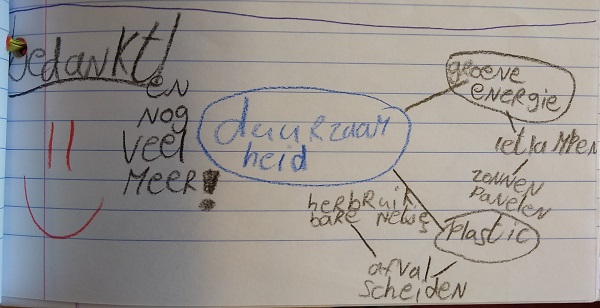 Bedankt!
en
nog
veel
meer!
duurzaam
heid
groene
energie
letlampen
zonnen
panelen
plastic
herbruik
bare
afval
scheiden